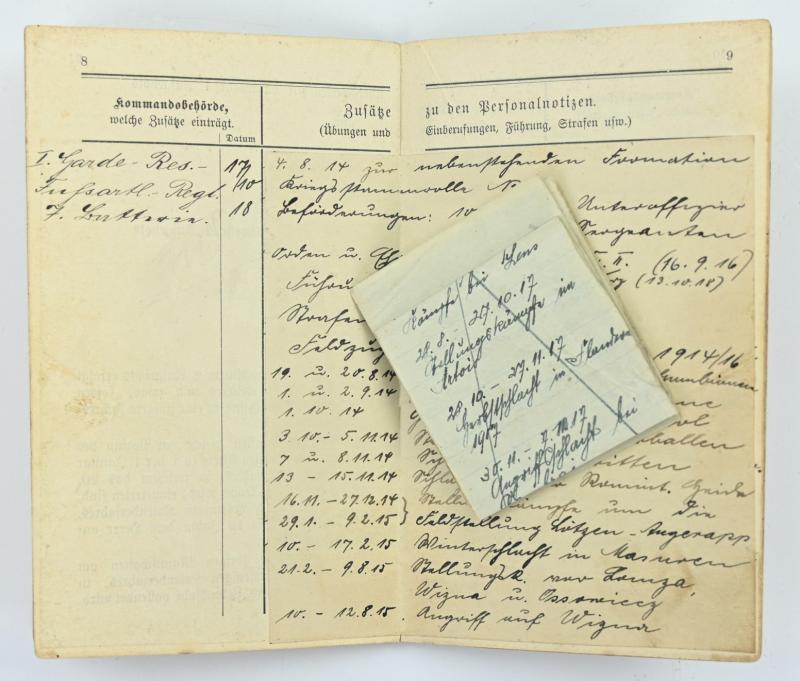 8
Kommandobehörde,
welche Zusätze einträgt.
Datum
Zusätze
(Übungen und
I. Garde-Res.-
Fussartl.-Regt.
7. Batterie.
17/
10
18
9
zu den Personalnotizen.
Einberufungen, Führung, Strafen usw.)
4. 8. 14 zur nebenstehenden Formation
Kriegsstammrolle No
Beförderungen: 10 Unteroffizier
Sergeanten
Orden u. II. (16. 9. 16)
Führu (13.10.18)
Strafen
Feldzug 1914/16
19. u. 20.8.14
1. u. 2.9.14
1. 10. 14
3. 10. - 5. 11. 14
7. u. 8. 11. 14
13 - 15. 11. 14 Romint. Heide
16. 11. - 27. 12. 14 } kämpfe um die
29. 1. - 9. 2. 15 } Feldstellung Lötzen-Angerapp
10. - 17. 2. 15 Winterschlacht in Masuren
21. 2. - 9. 8. 15 Stellungsk. vor Lomza,
Wizna u. Ossowiecz
10. - 12. 8. 15. Angriff auf Wizna
Kämpfe bei Lens
28. 8. - 27. 10. 17
Stellungskämpfe im
Artois
28. 10. - 27. 11. 17
Herbstschlacht in Flandern
1917
30. 11. - 7. 12. 17
Angriffsschlacht bei